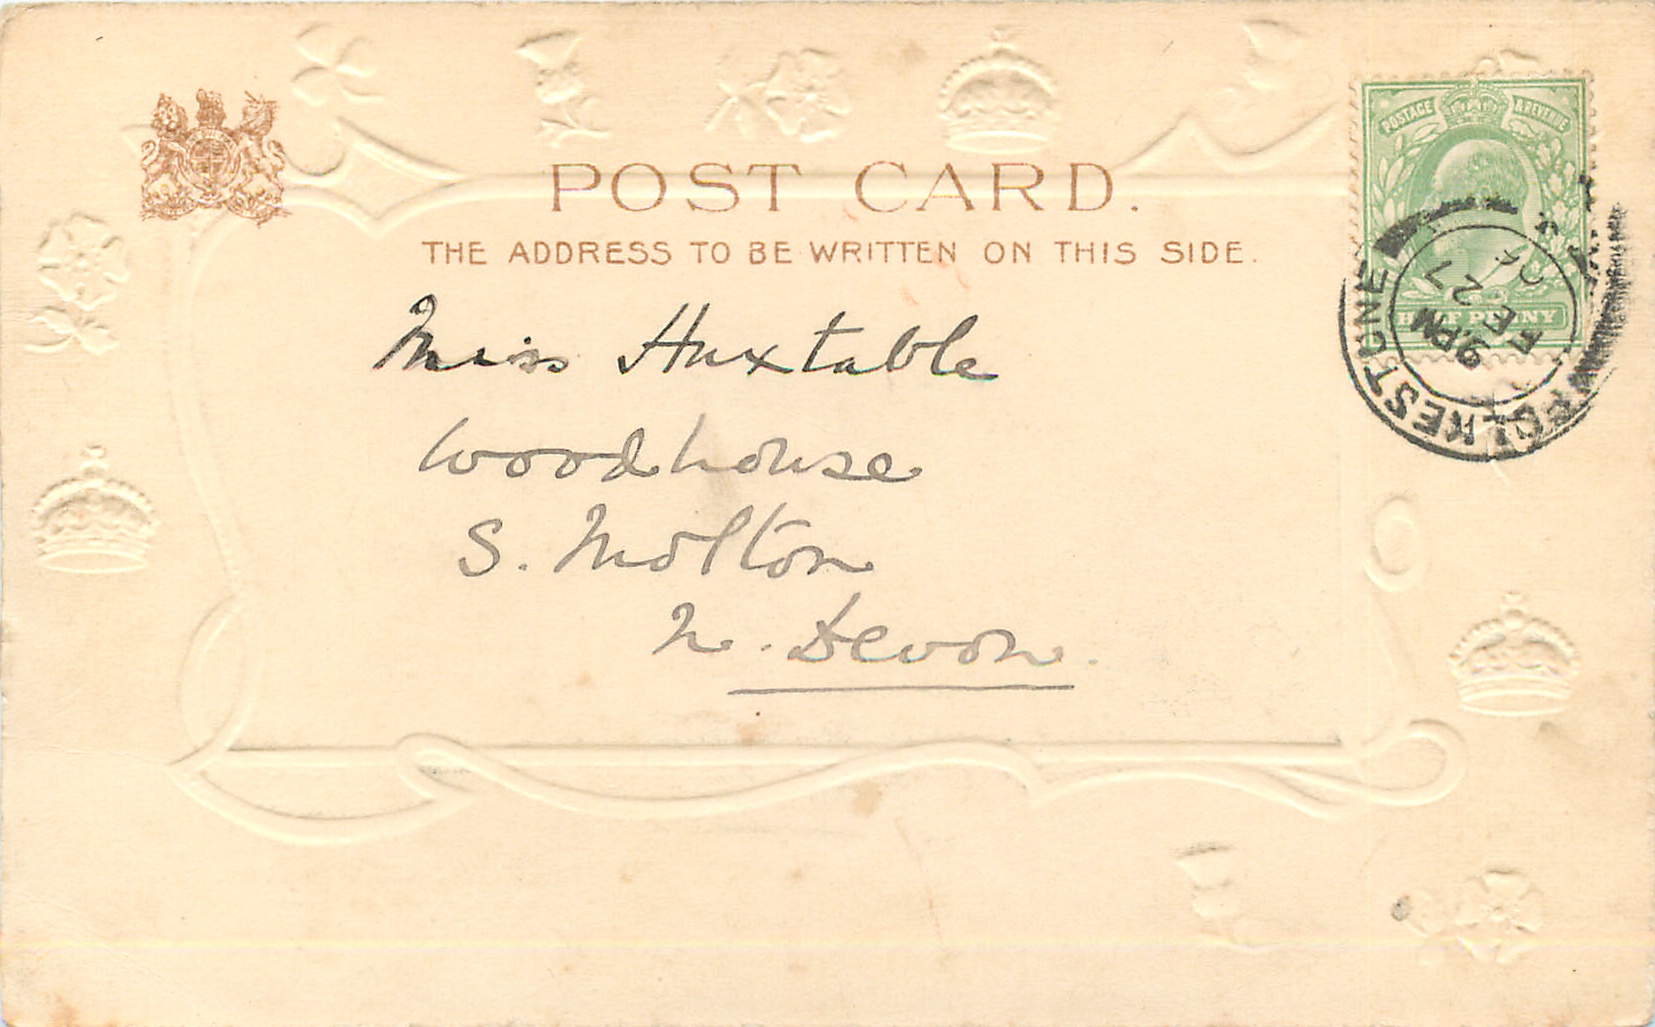 POST CARD.
THE ADDRESS TO BE WRITTEN ON THIS SIDE.
POSTAGE & REVENUE
HALF PENNY
FOLKESTONE
9.PM
FE 27
06
Miss Huxtable
Woodhouse
S. Molton
N. Devon.